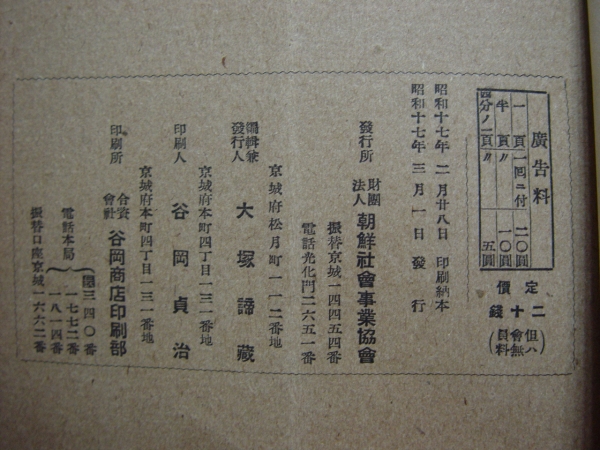 廣告料
一頁 一回ニ付 二〇圓
半頁 〃 一〇圓
四分ノ一頁 〃 五圓
定價
二十錢
(但會員ハ無料)
昭和十七年二月廿八日 印刷納本
昭和十七年三月一日 發行
發行所 財團法人 朝鮮社會事業協會
振替京城一四四五四番
電話光化門二六五一番
京城府松月町一一二番地
編輯兼發行人 大塚諦藏
京城府本町四丁目一三一番地
印刷人 谷岡貞治
京城府本町四丁目一三一番地
印刷所 合資會社 谷岡商店印刷部
電話本局
三四〇番
一七七二番
一八一四番
振替口座京城一六六二番